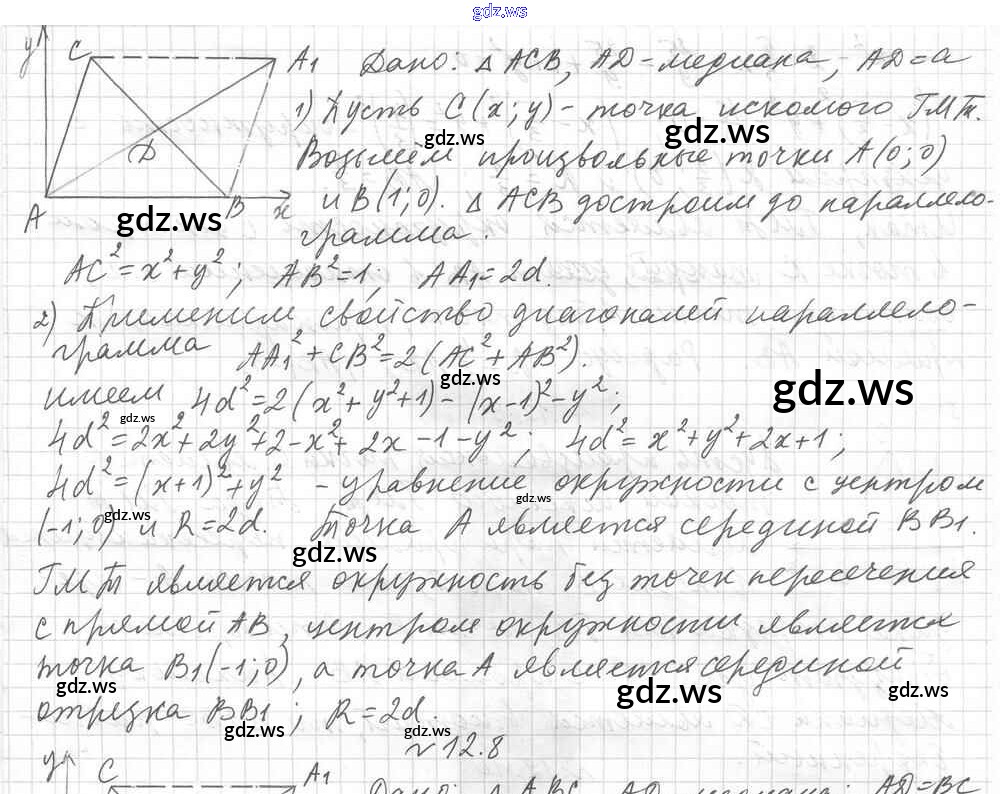 gdz.ws
y C A1 Дано: △ ACB, AD-медиана, AD=a
1) Пусть C(x; y) - точка искомого ГМТ.
gdz.ws gdz.ws
D Возьмём произвольные точки A(0; 0)
A B x и B(1; 0). △ ACB достроим до параллело-
gdz.ws
грамма.
AC²=x²+y²; AB²=1, AA1=2d.
2) Применим свойство диагоналей параллело-
грамма AA1²+CB²=2(AC²+AB²).
gdz.ws gdz.ws
имеем 4d²=2(x²+y²+1)-(x-1)²-y²;
gdz.ws
4d²=2x²+2y²+2-x²+2x-1-y²; 4d²=x²+y²+2x+1;
4d²=(x+1)²+y² - уравнение окружности с центром
gdz.ws gdz.ws
(-1; 0) и R=2d. Точка A является серединой BB1.
gdz.ws
ГМТ является окружность без точек пересечения
с прямой AB, центром окружности является
точка B1(-1; 0), а точка A является серединой
gdz.ws gdz.ws gdz.ws
отрезка BB1; R=2d.
gdz.ws gdz.ws
~ 12.8
y C A1 Дано: △ ABC, AD медиана; AD=BC